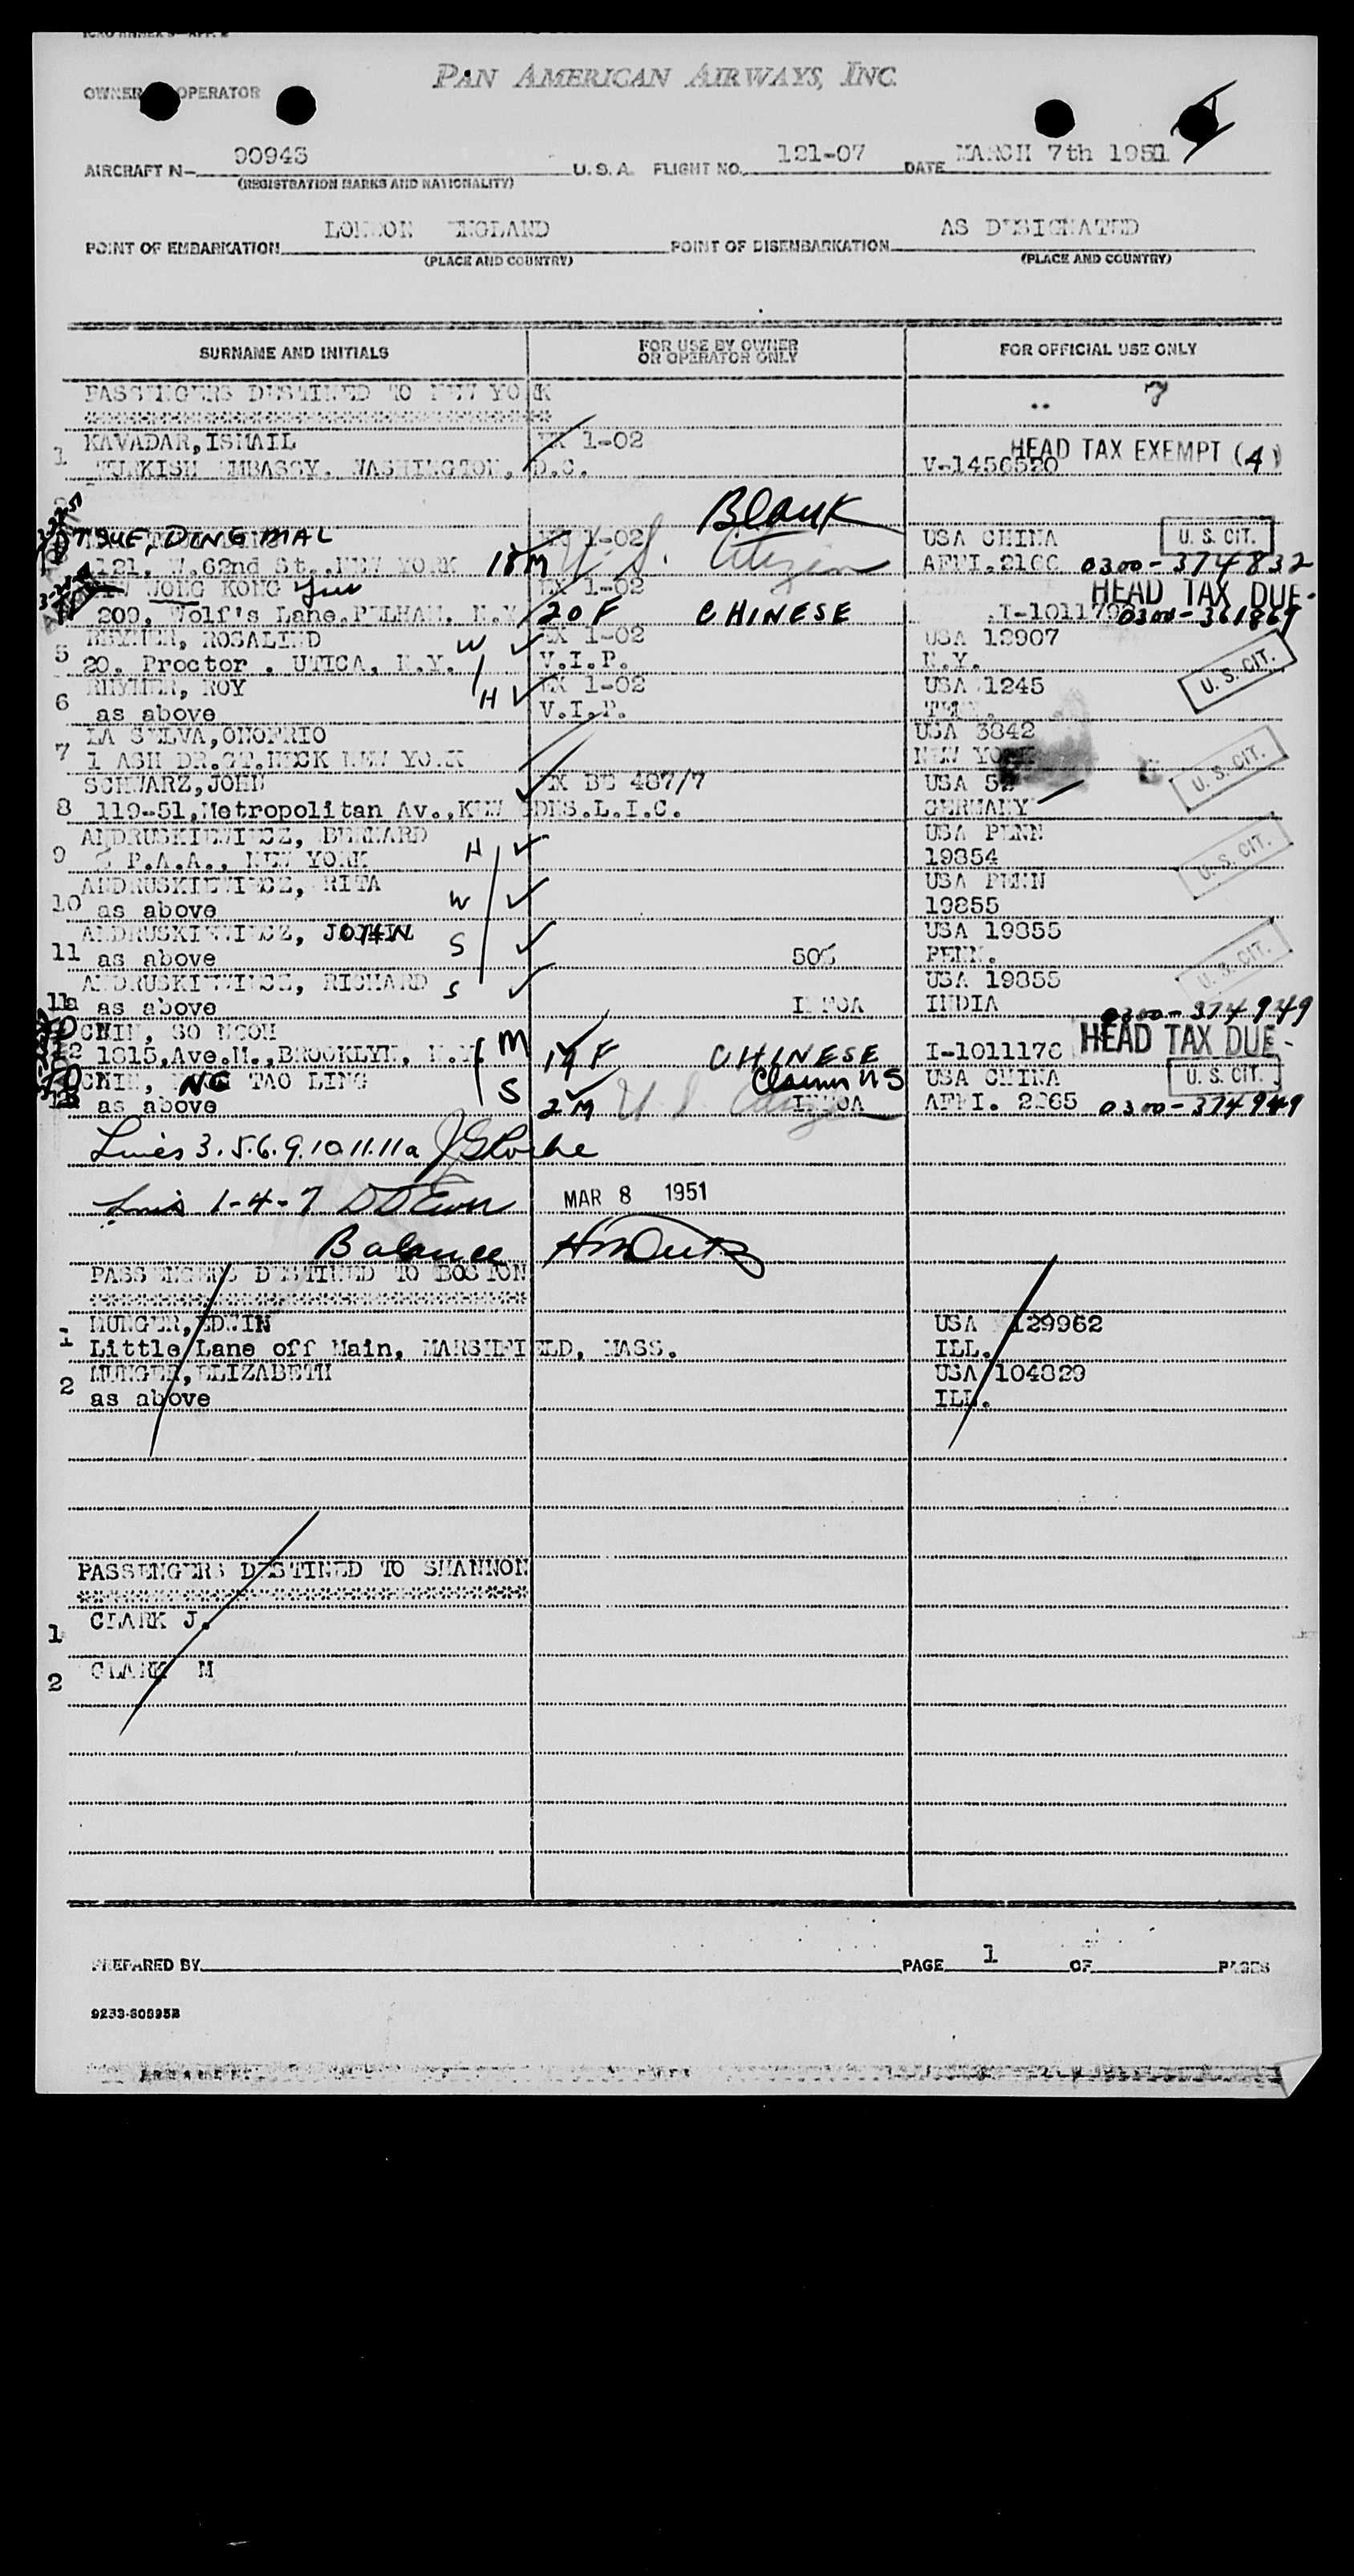 PAN AMERICAN AIRWAYS, INC.
OWNER OPERATOR
AIRCRAFT N- 90948 U.S.A. FLIGHT NO. 121-07 DATE MARCH 7th 1951
(REGISTRATION MARKS AND NATIONALITY)
POINT OF EMBARKATION LONDON ENGLAND POINT OF DISEMBARKATION AS DESIGNATED
(PLACE AND COUNTRY) (PLACE AND COUNTRY)
SURNAME AND INITIALS FOR USE BY OWNER OR OPERATOR ONLY FOR OFFICIAL USE ONLY
PASSENGERS DESTINED TO NEW YORK 7
1 KAVADAR, ISMAIL EX 1-02 HEAD TAX EXEMPT (4)
TURKISH EMBASSY, WASHINGTON, D.C. V-1456520
Blank
TSUE, DING MAL 1-02 USA CHINA U. S. CIT.
121, W.62nd St., NEW YORK 18 M U.S. Citizen AFFI. 0300-374832
JONG KONG Yuu EX 1-02 HEAD TAX DUE-
209, Wolf's Lane, PELHAM, N.Y. 20 F CHINESE 0300-361869
5 RHYNER, ROSALIND W EX 1-02 USA 12907
20, Proctor . UTICA, N.Y. V.I.P. N.Y. U. S. CIT.
6 RHYNER, ROY H EX 1-02 USA 1245
as above V.I.P. TENN.
7 LA SELVA, ONOFRIO USA 3842
1 ASH DR.GT.NECK NEW YORK NEW YORK U. S. CIT.
8 SCHWARZ, JOHN EX BG 487/7 USA
119-51, Metropolitan Av., KEW GDNS.L.I.C. GERMANY
9 ANDRUSKIEWIECZ, BERNARD H USA PENN
P.A.A., NEW YORK 19854 U. S. CIT.
10 ANDRUSKIEWIECZ, RITA W USA PENN
as above 19855
11 ANDRUSKIEWIECZ, JOHN S USA 19855
as above 50% PENN. U. S. CIT.
11a ANDRUSKIEWIECZ, RICHARD S USA 19855
as above INDIA 0300-374949
12 CHIN, SO NGOH M HEAD TAX DUE-
1815, Ave.M., BROOKLYN, N.Y. 19 F CHINESE I-1011176
CHIN, NG TAO LING S Claims US USA CHINA U. S. CIT.
as above 2 M AFFI. 2265 0300-374949
Lines 3.5.6.9.10.11.11a
Lines 1-4-7 MAR 8 1951
Balance
PASSENGERS DESTINED TO BOSTON
1 MUNGER, EDWIN USA 129962
Little Lane off Main, MARSHFIELD, MASS. ILL.
2 MUNGER, ELIZABETH USA 104829
as above ILL.
PASSENGERS DESTINED TO SHANNON
1 CLARK J.
2 CLARK M
PREPARED BY PAGE 1 OF PAGES